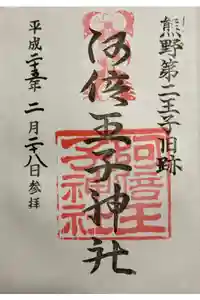 熊野第二王子旧跡
阿倍王子神社
平成二十五年二月二十八日参拝
阿倍王
子神社